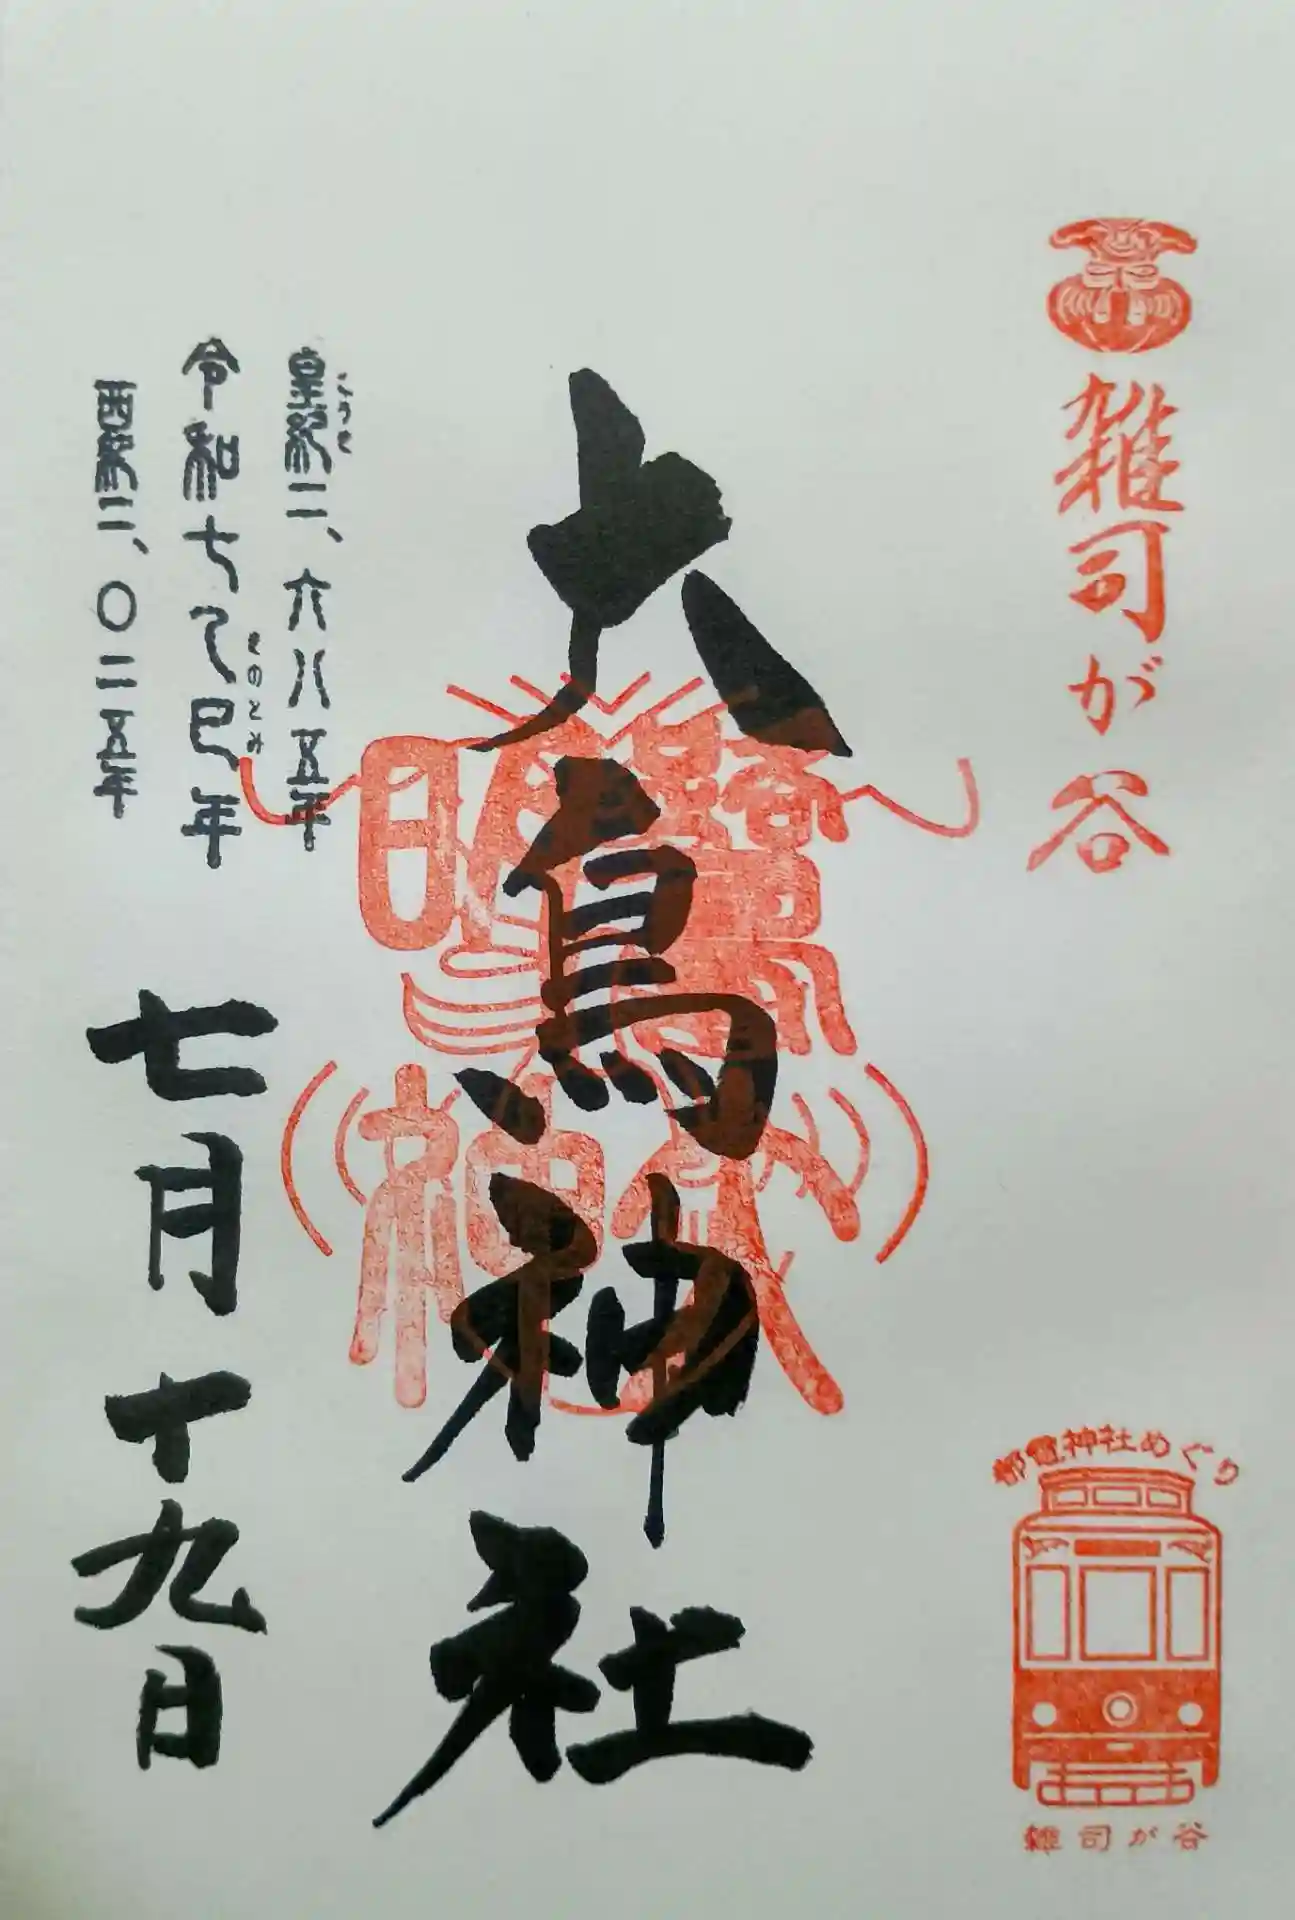 雑司が谷
大鳥神社
皇紀二、六八五年
こうき
令和七乙巳年
きのとみ
西紀二、〇二五年
七月十九日
都電神社めぐり
雑司が谷